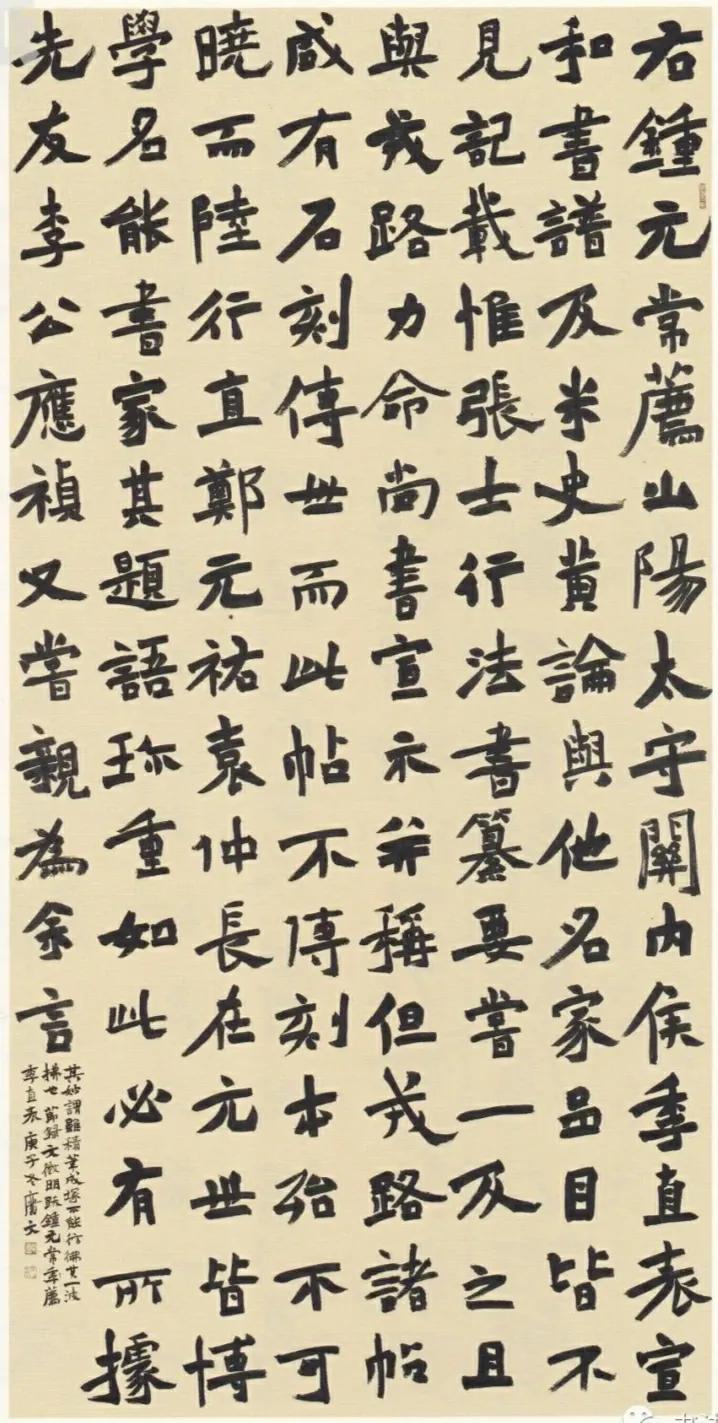 右鍾元常薦山陽太守關內侯季直表宣
和書譜及米史黃論與他名家品目皆不
見記載惟張士行法書纂要嘗一及之且
與戎路力命尚書宣示并稱但戎路諸帖
咸有石刻傳世而此帖不傳刻本殆不可
曉而陸行直鄭元祐袁仲長在元世皆博
學名能書家其題語珎重如此必有所據
先友李公應禎又嘗親為余言
其妙謂雖積筆成塚不能彷彿其一波
拂也 節録文徵明跋鍾元常季薦
季直表 庚子冬 文